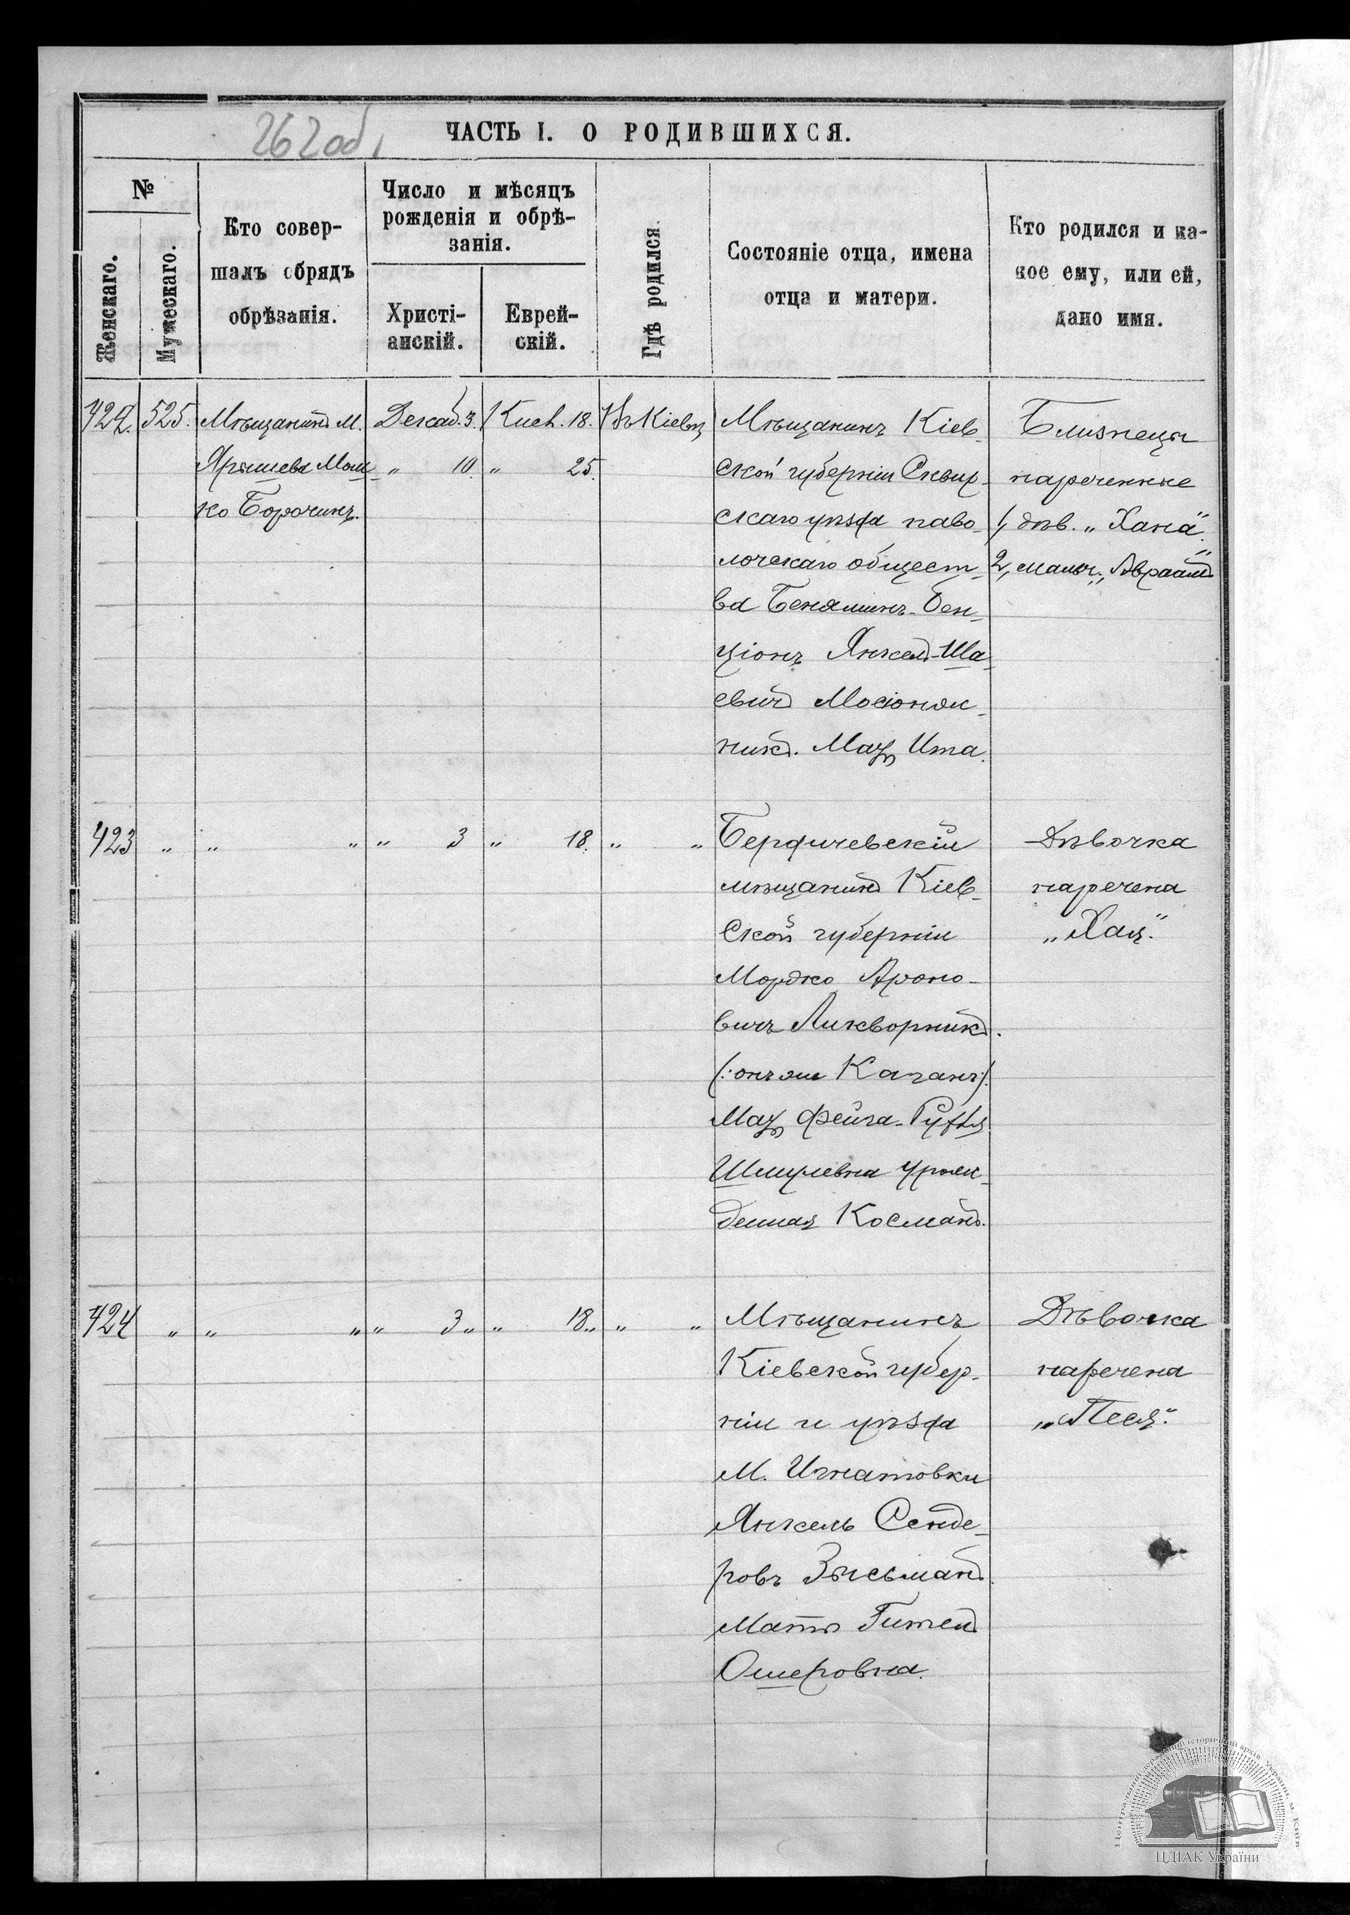 262 об.
ЧАСТЬ I. О РОДИВШИХСЯ.
№
Женскаго.
Мужескаго.
Кто совер-
шалъ обрядъ
обрѣзанія.
Число и мѣсяцъ
рожденія и обрѣ-
занія.
Христі-
анскій.
Еврей-
скій.
Гдѣ родился
Состояніе отца, имена
отца и матери.
Кто родился и ка-
кое ему, или ей,
дано имя.
422. 525.
Мѣщанинъ М.
Ярышева Мош-
ко Борочинъ.
Декаб. 3.
„ 10.
Кисл. 18.
„ 25.
Въ Кіевѣ
Мѣщанинъ Кіев-
ской губерніи Сквир-
скаго уѣзда паво-
лочскаго общест-
ва Бенямынъ-Бен-
ціонъ Янкель-Ша-
евичъ
никъ. Мать Ита.
Близнецы
нареченные
1, дѣв. „Хана“.
2, мальч. „Авраамъ“
423 „ „ „ „ 3 „ 18. „ „
Бердичевскій
мѣщанинъ Кіев-
ской губерніи
Мордко Ароно-
вичъ Ликворникъ.
(:онъ же Каганъ:).
Мать Фейга-Рухля
Шмулевна урож-
денная Косманъ.
Дѣвочка
наречена
„Хая“.
424 „ „ „ „ 3 „ „ 18 „ „ „
Мѣщанинъ
Кіевской губер-
ніи и уѣзда
М. Игнатовки
Янкель Сенде-
ровъ Зысьманъ.
Мать Гитель
Ошеровна.
Дѣвочка
наречена
„Песя“.
ЦДІАК України